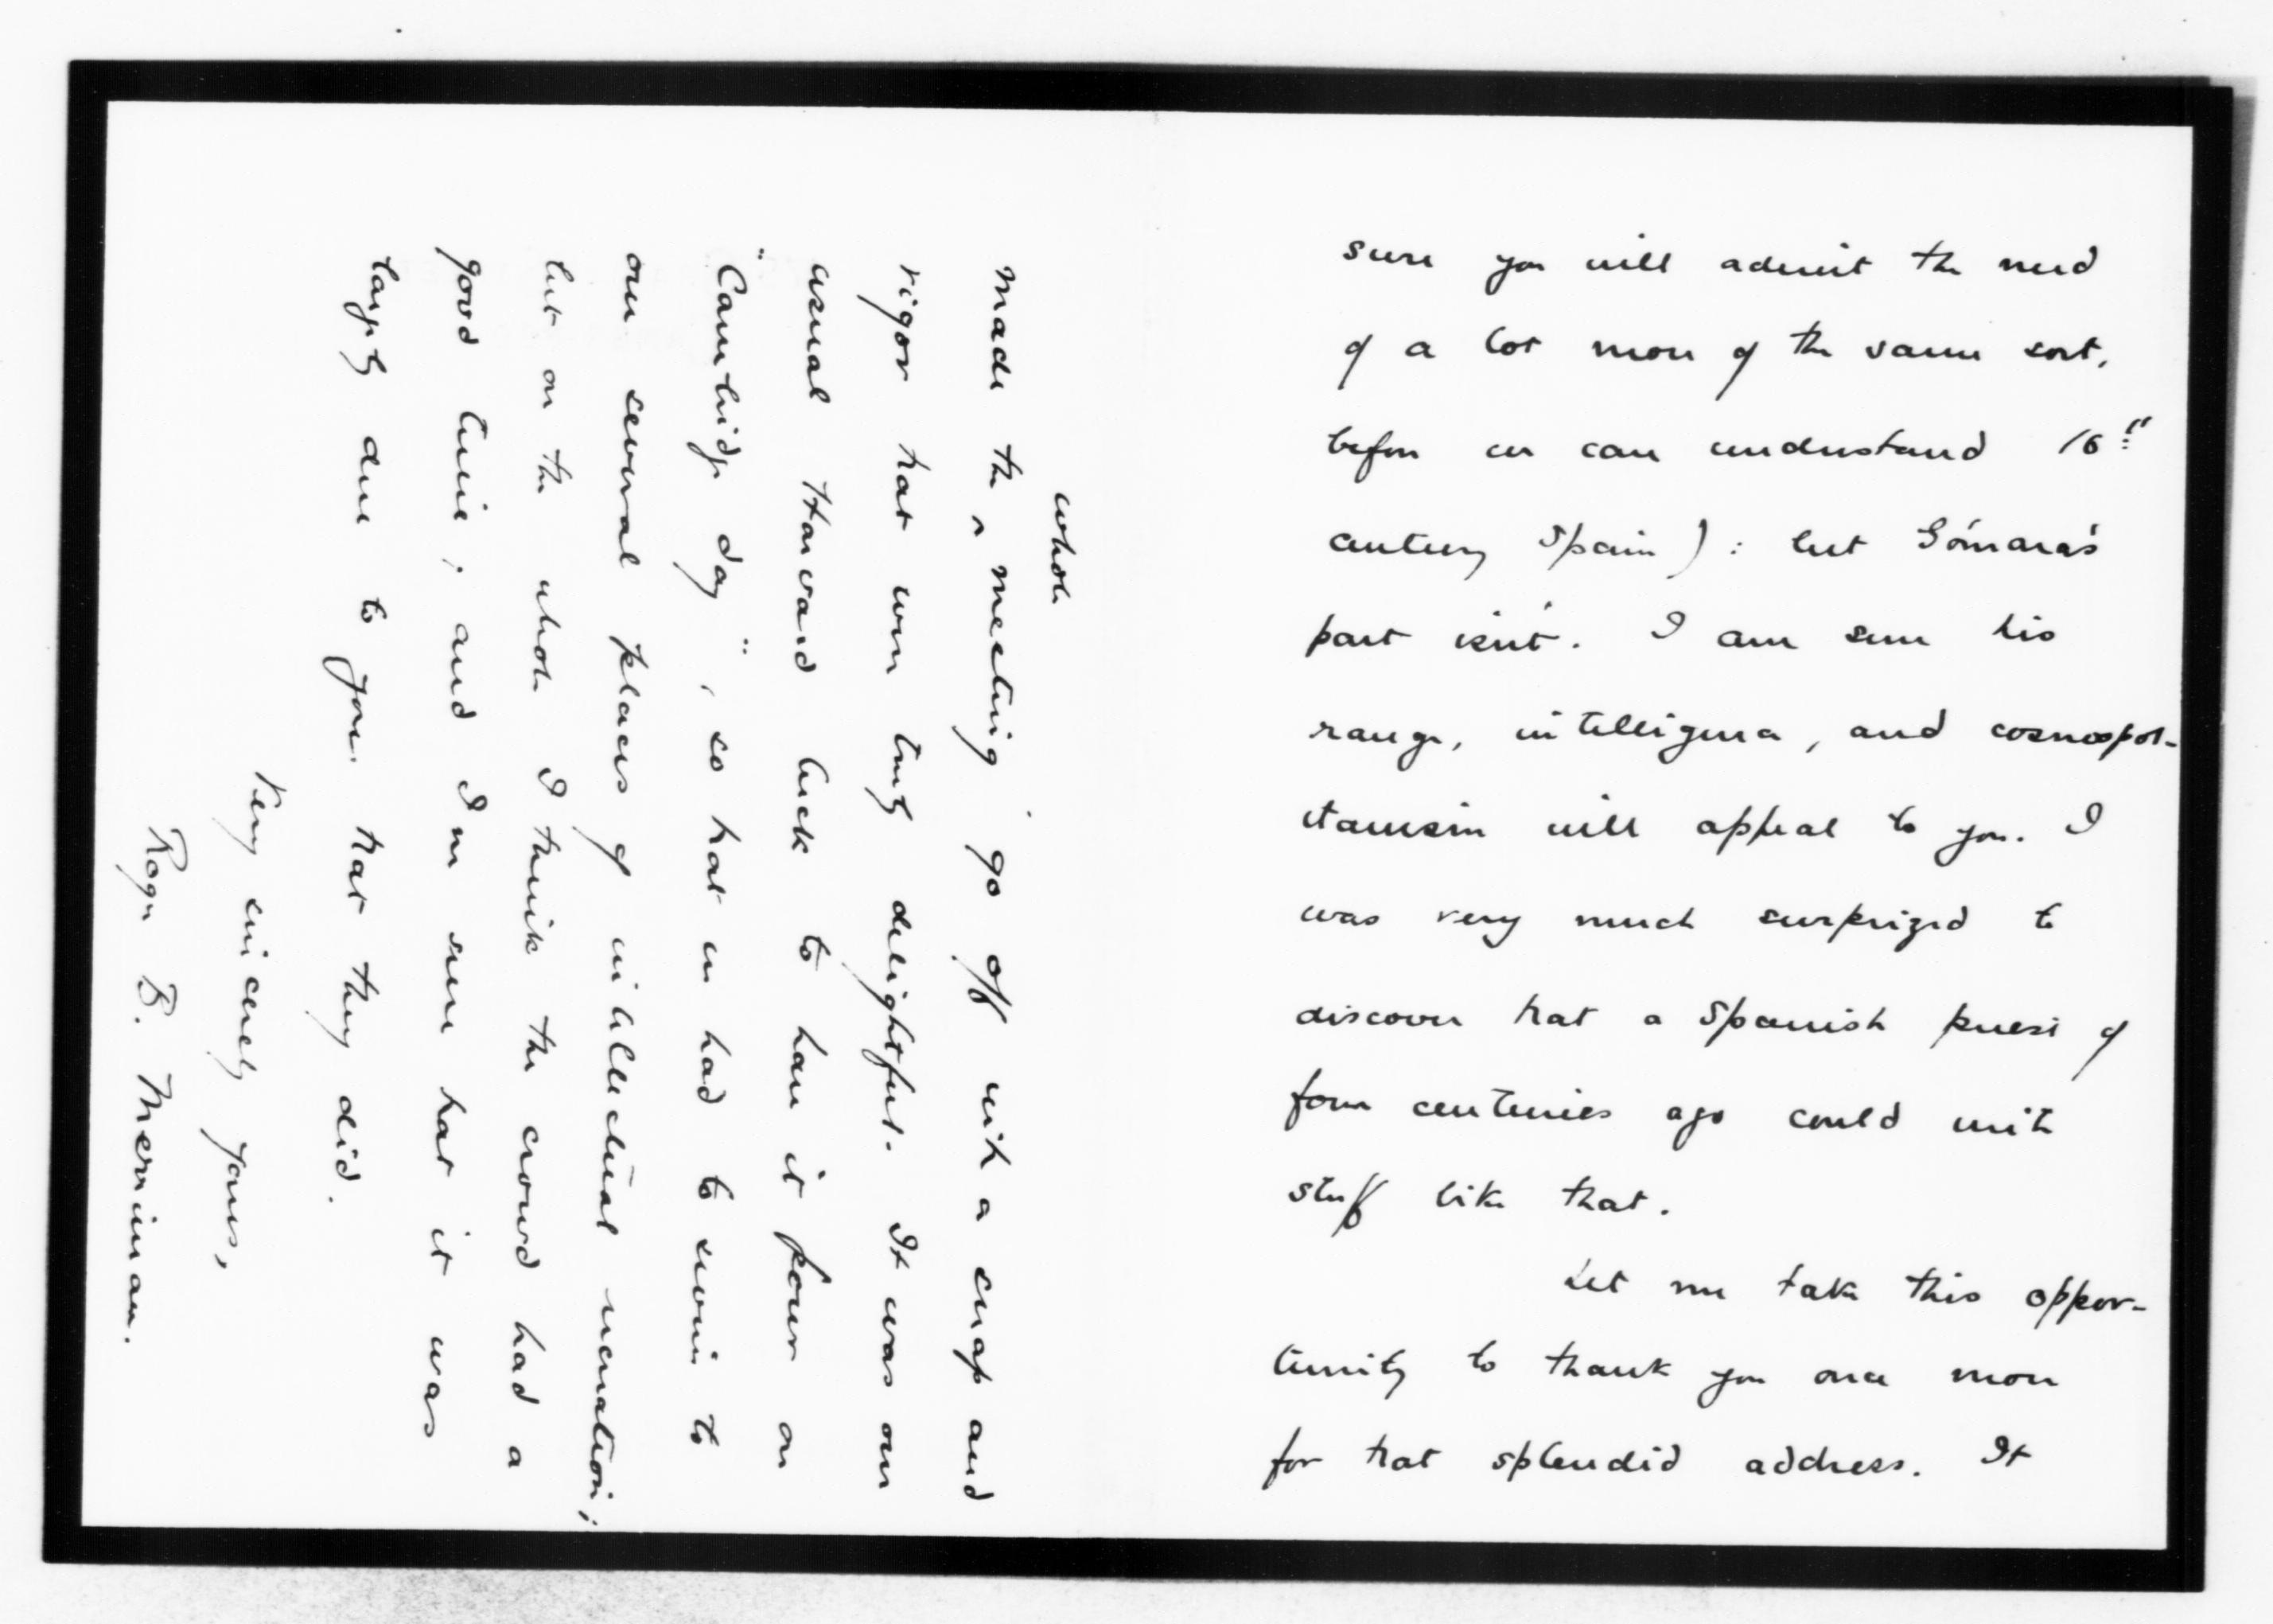 sure you will admit the need
of a lot more of the same sort,
before we can understand 16th
century Spain): but Gómara's
part isn't. I am sure his
range, intelligence, and cosmopol-
itanism will appeal to you. I
was very much surprized to
discover that a Spanish priest of
four centuries ago could write
stuff like that.
Let me take this oppor-
tunity to thank you once more
for that splendid address. It
made the whole meeting go off with a snap and
vigor that were truly delightful. It was our
usual Harvard luck to have it pour on
"Cambridge day", so that we had to swim to
our several places of intellectual recreation;
but on the whole I think the crowd had a
good time; and I'm sure that it was
largely due to you that they did.
Very sincerely yours,
Roger B. Merriman.